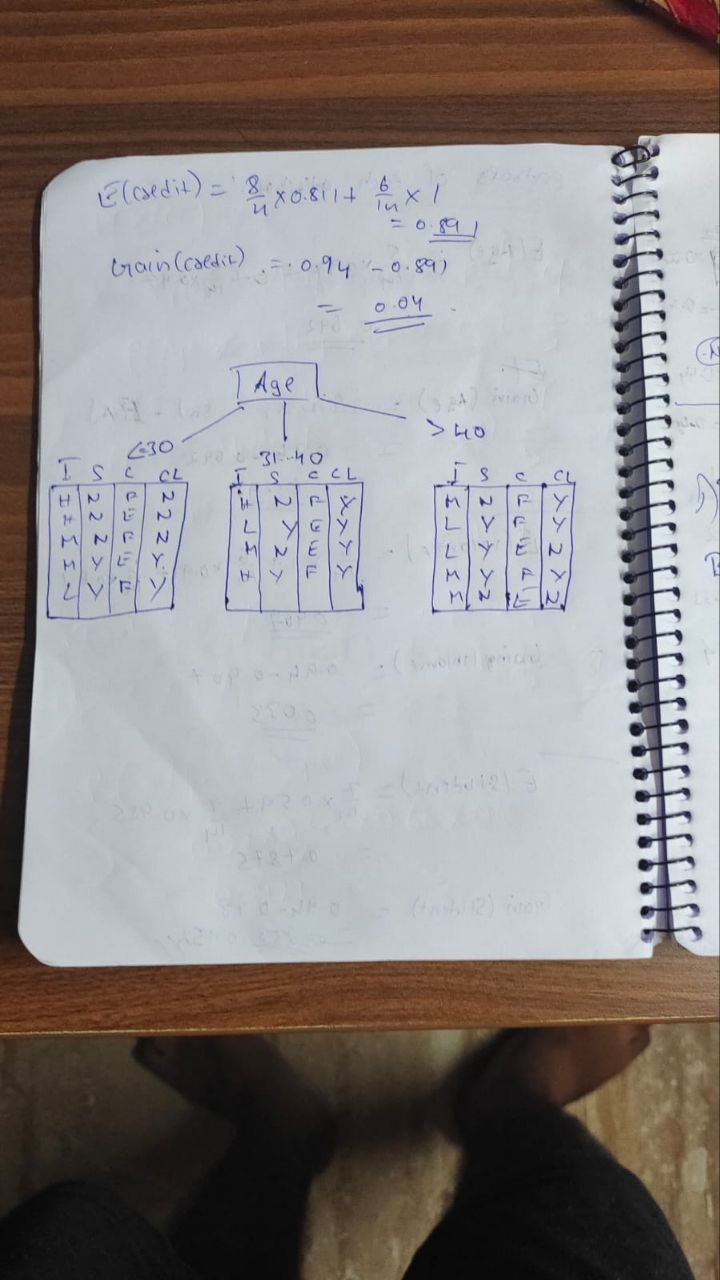 E(credit) = 8/14 × 0.811 + 6/14 × 1
= 0.891
Gain(credit) = 0.94 - 0.891
= 0.04
Age
<=30
31-40
>40
I S C CL
H N F N
H N E N
M N F N
M Y E Y
L Y F Y
I S C CL
H N F Y
L Y E Y
M N E Y
H Y F Y
I S C CL
M N F Y
L Y F Y
L Y E N
M Y F Y
M N E N